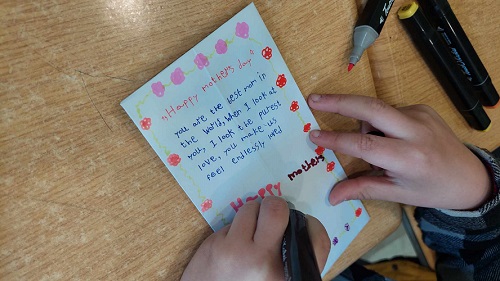 "Happy mothers day"
you are the best mom in
the world, when I look at
you, I look the purest
love, you make us
feel endlessly loved
Happy
mothers